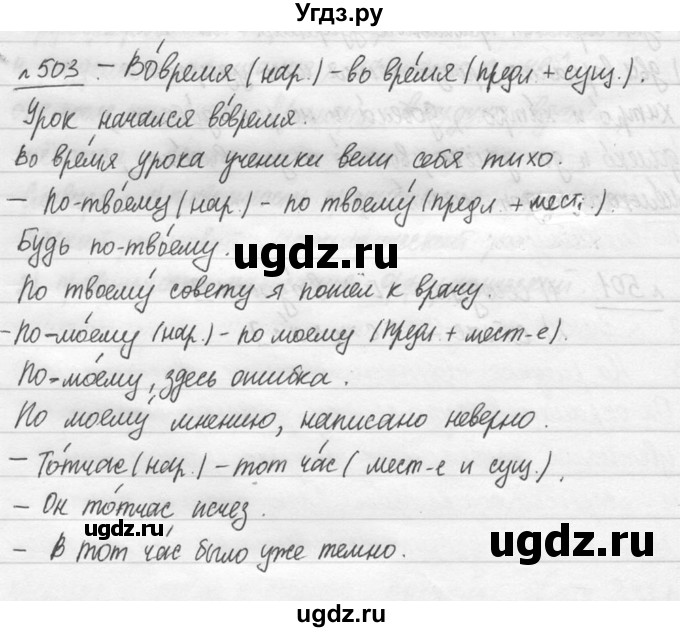 Угдз.ру
№503 - Во́время (нар.) - во вре́мя (предл + сущ.).
Урок начался во́время.
Во вре́мя урока ученики вели себя тихо.
- По-тво́ему (нар.) - по твоему́ (предл. + мест.).
Будь по-тво́ему.
ugdz.ru
По твоему́ совету я пошёл к врачу.
- По-мо́ему (нар.) - по моему (предл + мест-е).
По-мо́ему, здесь ошибка.
По моему́ мнению, написано неверно.
- То́тчас (нар.) - тот ча́с (мест-е и сущ.).
- Он то́тчас исчез.
ugdz.ru
ugdz.ru
- В тот ча́с было уже темно.
ugdz.ru